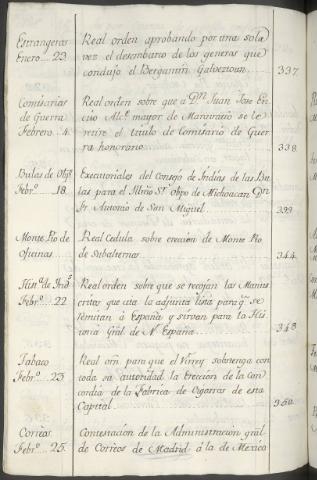 Estrangeros Real orden aprobando por una sola
Enero.... 23. vez el desembarco de los generos que
condujo el Bergantin Galveztown........ 337.
Comisarias Real orden sobre que a Dn. Juan Jose En
de Guerra cio Alce. mayor de Maravatio se le
Febrero.. 4. retire el titulo de Comisario de Guer
ra honorario........ 338.
Bulas de Obpo. Executoriales del Consejo de Indias de las Bu
Febro..... 18. las para el Illmo Sr. obpo de Michoacan Dn
Fr. Antonio de San Miguel........ 339
Monte Pio de Real Cedula sobre ereccion de Monte Pio
Oficinas..... de Subalternas........ 344.
Hisa. de Inds. Real orden sobre que se recojan las Manus
Febro.... 22 critos que cita la adjunta lista para q. se
remitan á España y sirvan para la His
toria Gral de Na. España....... 348
Tabaco Real orn. para que el Virrey sobtenga con
Febro... 23 toda su autoridad la Ereccion de la Con
cordia de la Fabrica de Cigarros de esta
Capital........ 350.
Correos Contestacion de la Administracion gral
Febro.... 25. de Correos de Madrid á la de Mexico